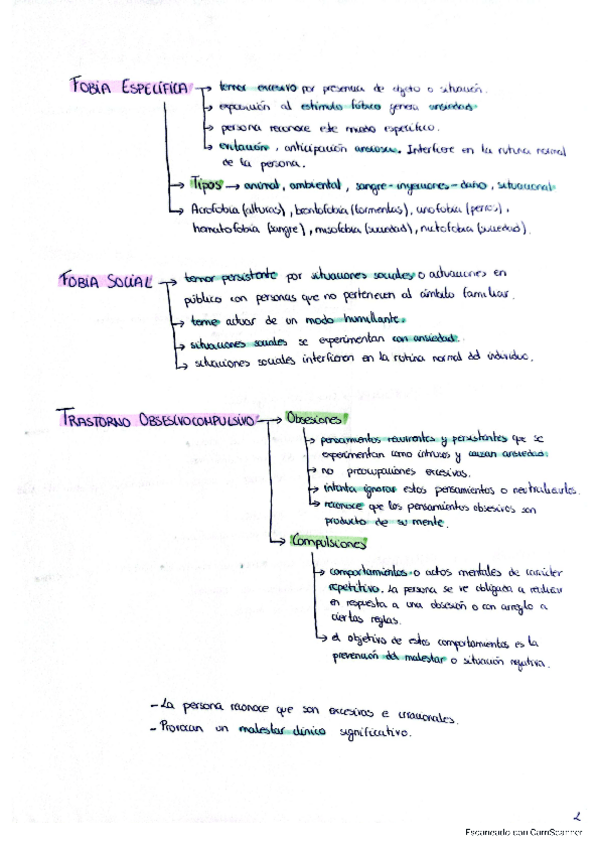 FOBIA ESPECÍFICA → temor excesivo por presencia de objeto o situación.
→ exposición al estímulo fóbico genera ansiedad.
→ persona reconoce este miedo específico.
→ evitación, anticipación ansiosa. Interfiere en la rutina normal
de la persona.
→ Tipos → animal, ambiental, sangre-inyecciones-daño, situacional
→ Acrofobia (alturas), brontofobia (tormentas), cinofobia (perros),
hematofobia (sangre), misofobia (suciedad), nictofobia (suciedad).
FOBIA SOCIAL → temor persistente por situaciones sociales o actuaciones en
público con personas que no pertenecen al ámbito familiar.
→ teme actuar de un modo humillante.
→ situaciones sociales se experimentan con ansiedad.
→ situaciones sociales interfieren en la rutina normal del individuo.
TRASTORNO OBSESIVOCOMPULSIVO → Obsesiones
→ pensamientos recurrentes y persistentes que se
experimentan como intrusos y causan ansiedad.
→ no preocupaciones excesivas.
→ intenta ignorar estos pensamientos o neutralizarlos.
→ reconoce que los pensamientos obsesivos son
producto de su mente.
→ Compulsiones
→ comportamientos o actos mentales de carácter
repetitivo. La persona se ve obligada a realizar
en respuesta a una obsesión o con arreglo a
ciertas reglas.
→ el objetivo de estos comportamientos es la
prevención del malestar o situación negativa.
- La persona reconoce que son excesivas e irracionales.
- Provocan un malestar clínico significativo.
Escaneado con CamScanner